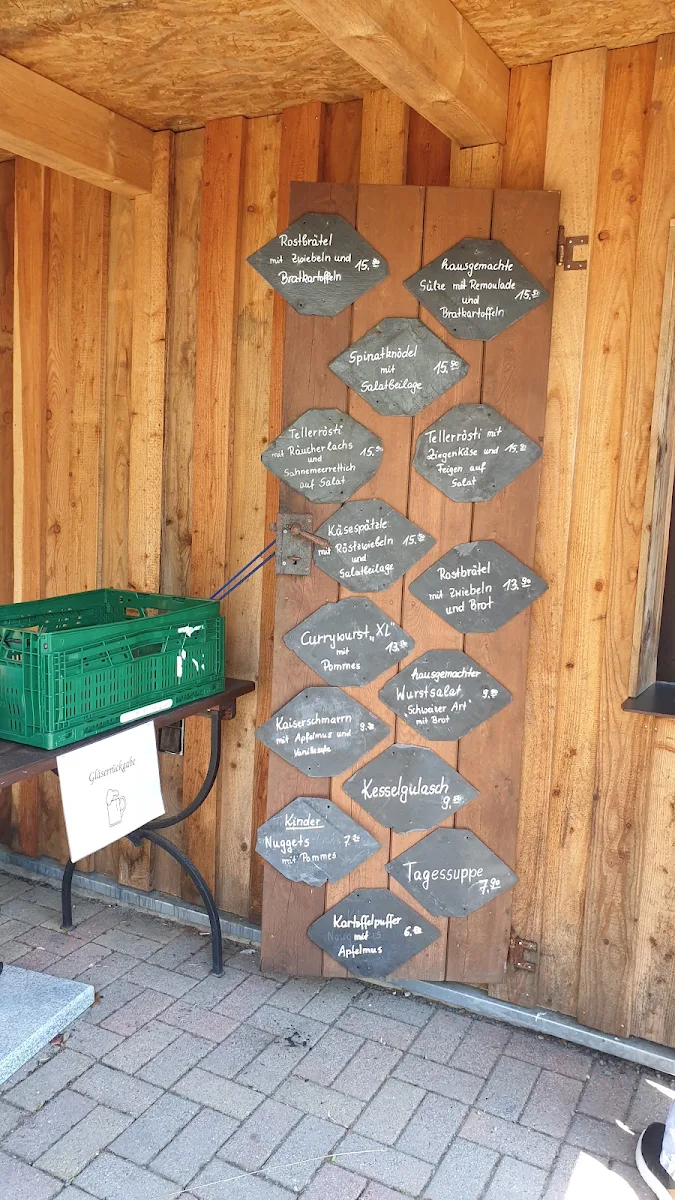 Rostbrätel
mit Zwiebeln und 15.90
Bratkartoffeln
hausgemachte
Sülze mit Remoulade
und 15.90
Bratkartoffeln
Spinatknödel
mit 15.90
Salatbeilage
Tellerrösti
mit Räucherlachs 15.90
und
Sahnemeerrettich
auf Salat
Tellerrösti mit
Ziegenkäse und 15.90
Feigen auf
Salat
Käsespätzle
mit Röstzwiebeln 15.90
und
Salatbeilage
Rostbrätel
mit Zwiebeln 13.90
und Brot
Currywurst „XL"
mit 13.90
Pommes
hausgemachter
Wurstsalat 9.90
„Schweizer Art"
mit Brot
Kaiserschmarrn
mit Apfelmus und 9.90
Vanillesoße
Kesselgulasch
9.90
Kinder
Nuggets 7.90
mit Pommes
Tagessuppe
7.90
Kartoffelpuffer
mit 6.90
Apfelmus
Gläserrückgabe